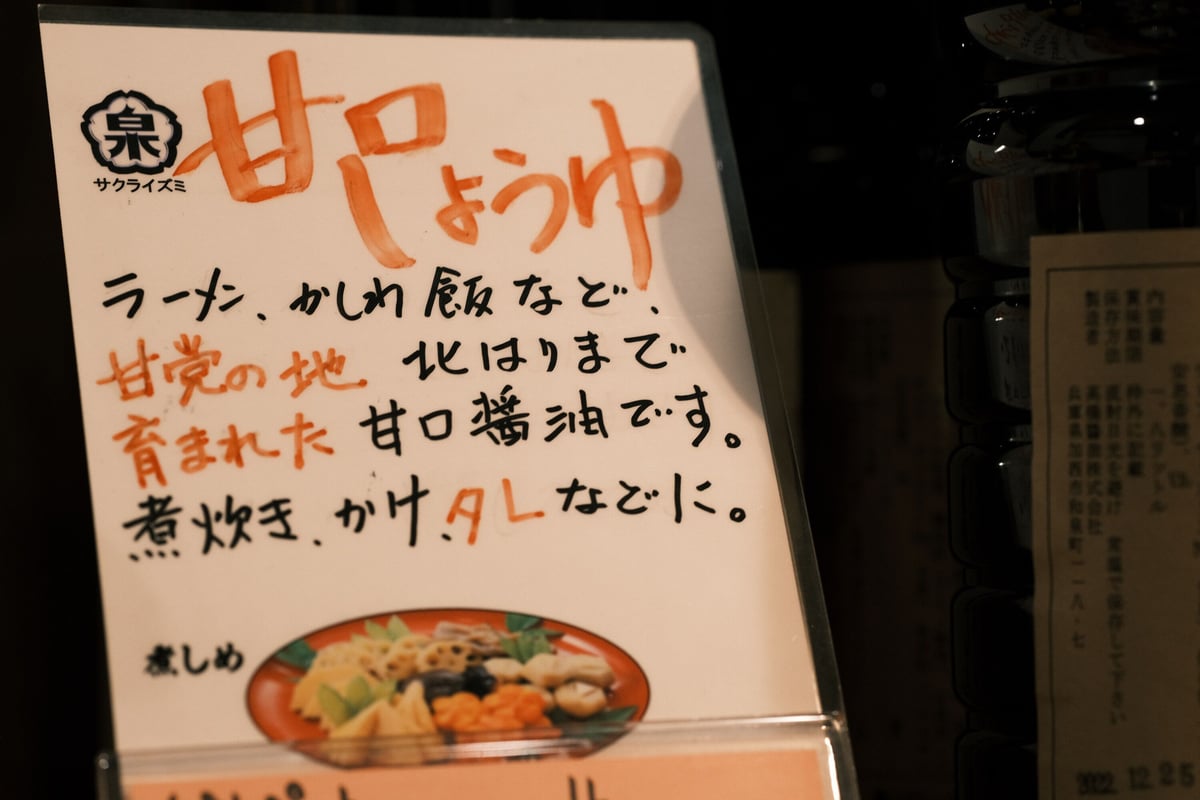 泉
サクライズミ
甘口しょうゆ
ラーメン、かしわ飯など、
甘党の地 北はりまで
育まれた 甘口醤油です。
煮炊き、かけ、タレなどに。
煮しめ
内容量 一.八リットル
賞味期限 枠外に記載
保存方法 直射日光を避け 常温で保存して下さい
製造者 高橋醤油株式会社
兵庫県加西市和泉町一一八-七
2022. 12. 25